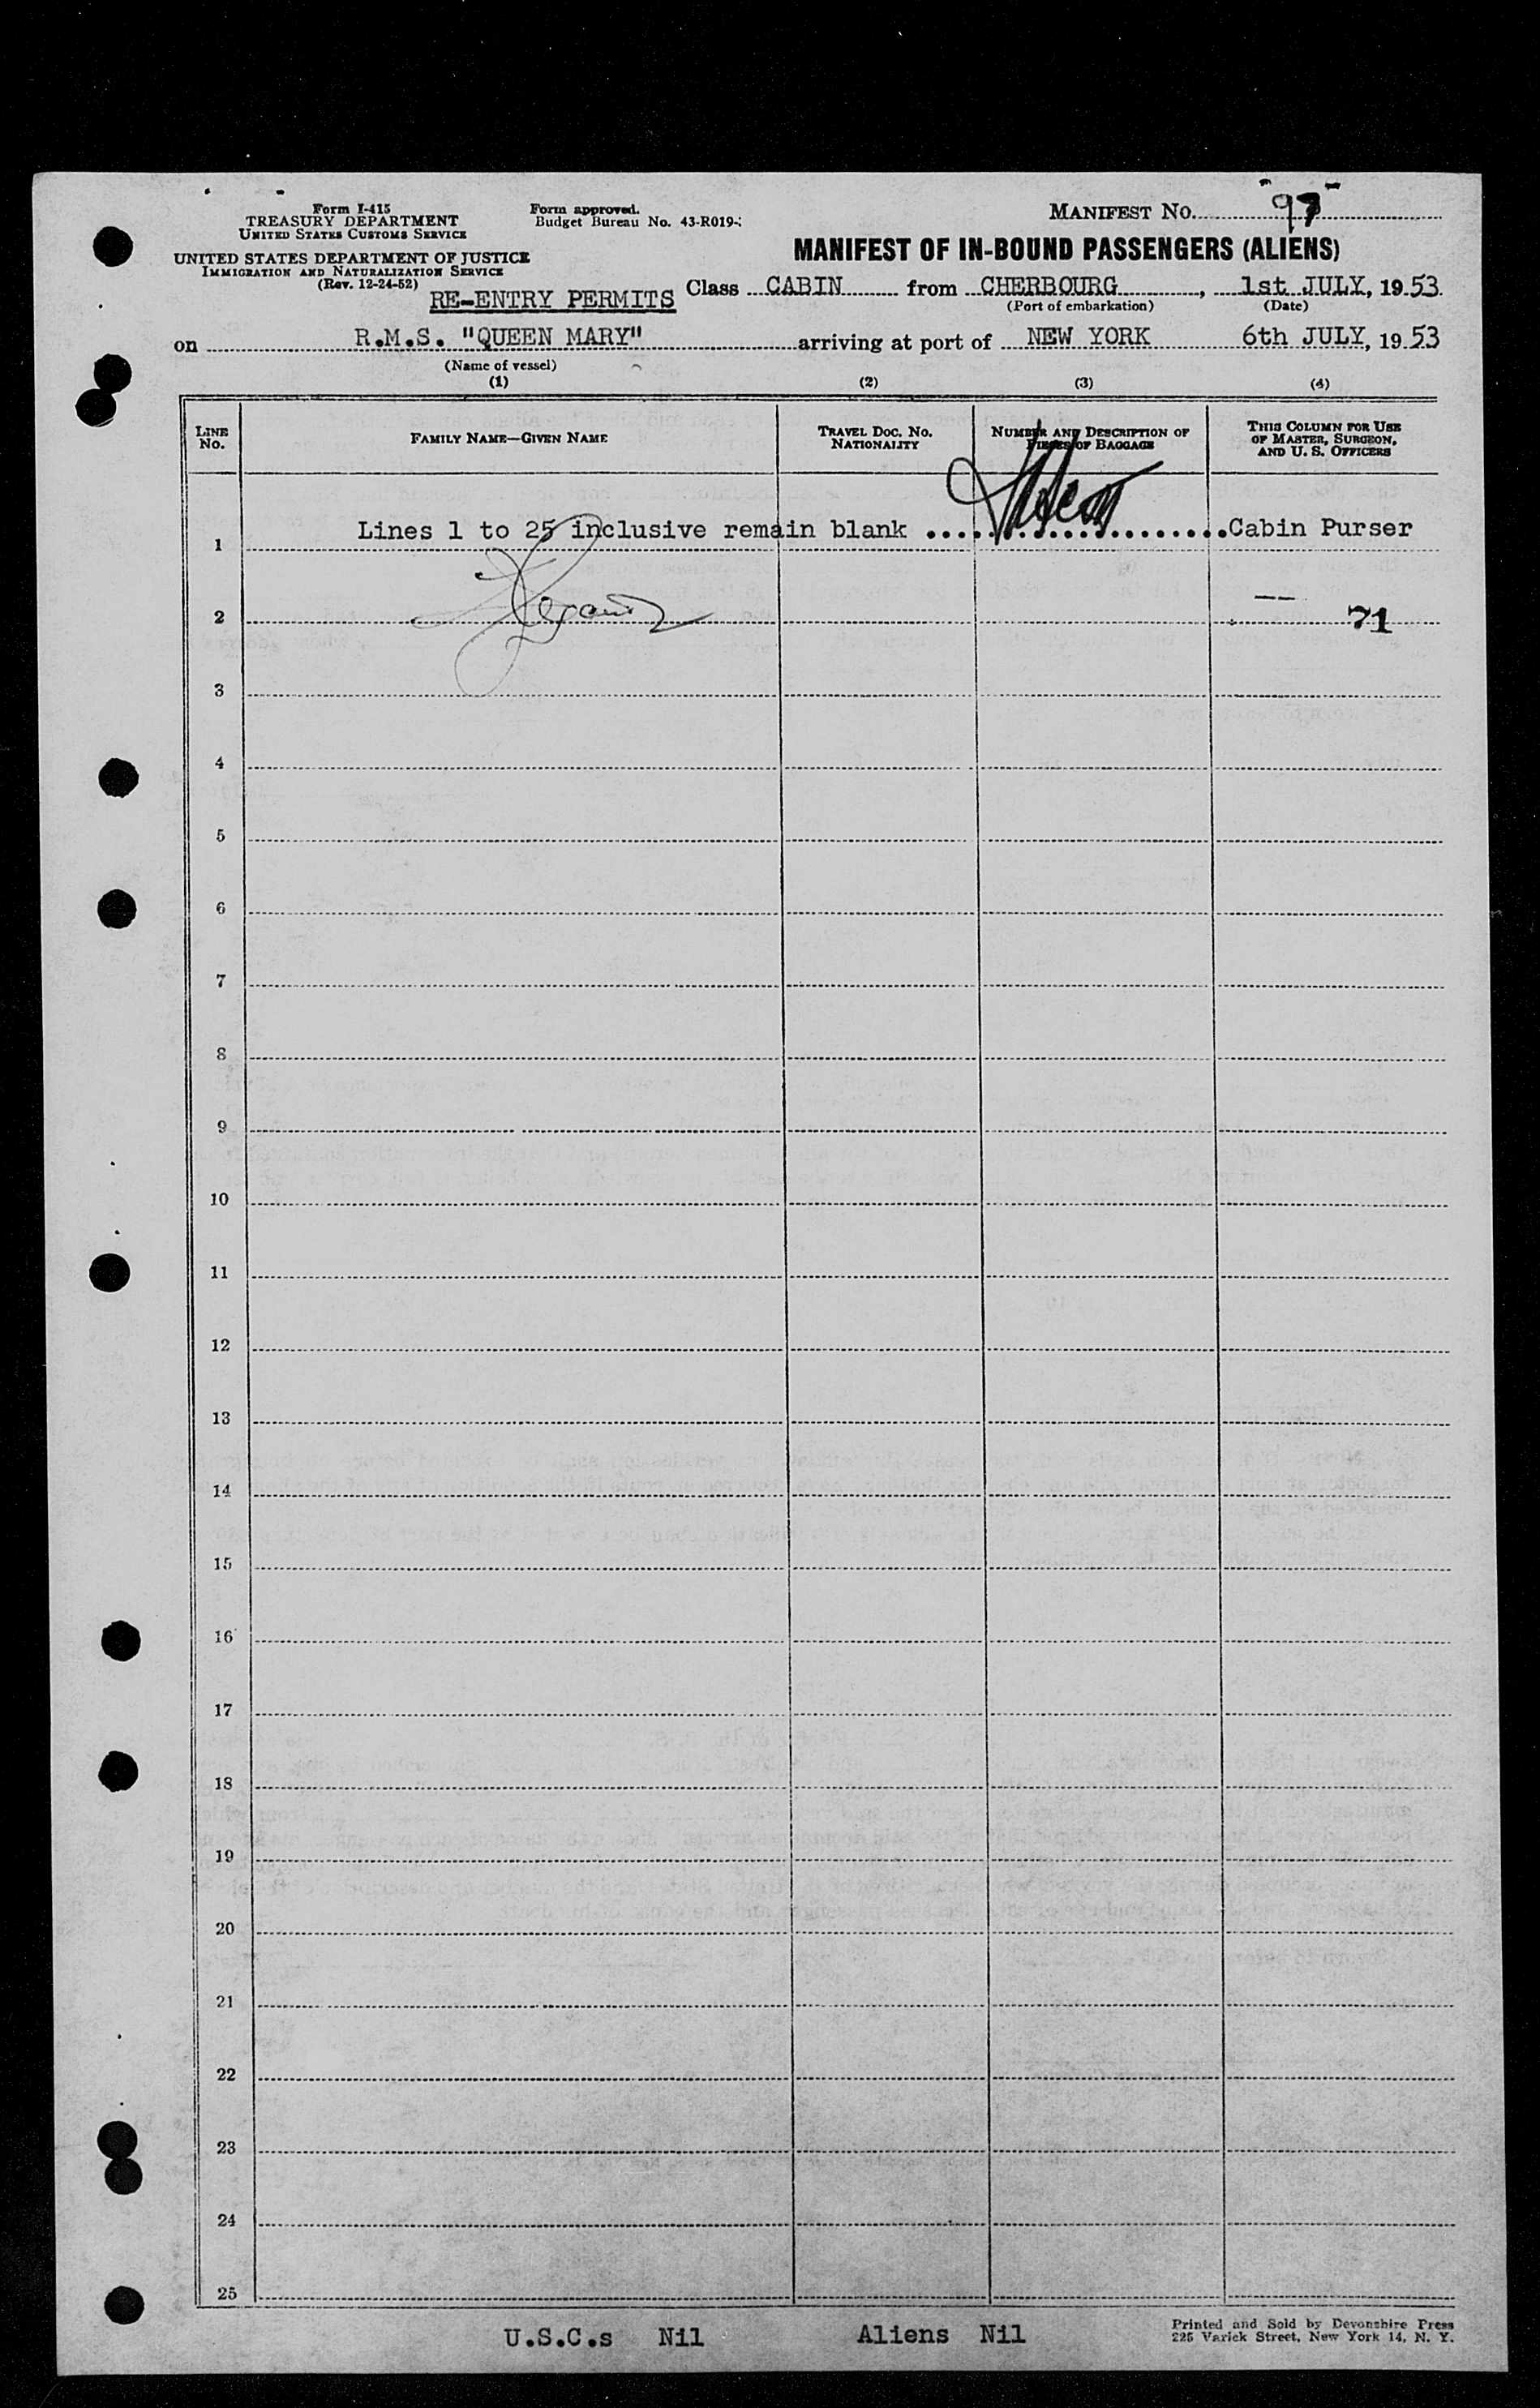 Form I-415
TREASURY DEPARTMENT
UNITED STATES CUSTOMS SERVICE
UNITED STATES DEPARTMENT OF JUSTICE
IMMIGRATION AND NATURALIZATION SERVICE
(Rev. 12-24-52)
Form approved.
Budget Bureau No. 43-R019-
MANIFEST NO.
MANIFEST OF IN-BOUND PASSENGERS (ALIENS)
RE-ENTRY PERMITS Class CABIN from CHERBOURG, 1st JULY, 1953
(Port of embarkation) (Date)
on R.M.S. "QUEEN MARY" arriving at port of NEW YORK 6th JULY, 1953
(Name of vessel)
(1) (2) (3) (4)
LINE NO.
FAMILY NAME—GIVEN NAME
TRAVEL DOC. NO. NATIONALITY
NUMBER AND DESCRIPTION OF PIECES OF BAGGAGE
THIS COLUMN FOR USE OF MASTER, SURGEON, AND U. S. OFFICERS
1 Lines 1 to 25 inclusive remain blank ..................... Cabin Purser
2 71
3
4
5
6
7
8
9
10
11
12
13
14
15
16
17
18
19
20
21
22
23
24
25
U.S.C.s Nil Aliens Nil
Printed and Sold by Devonshire Press
225 Varick Street, New York 14, N. Y.